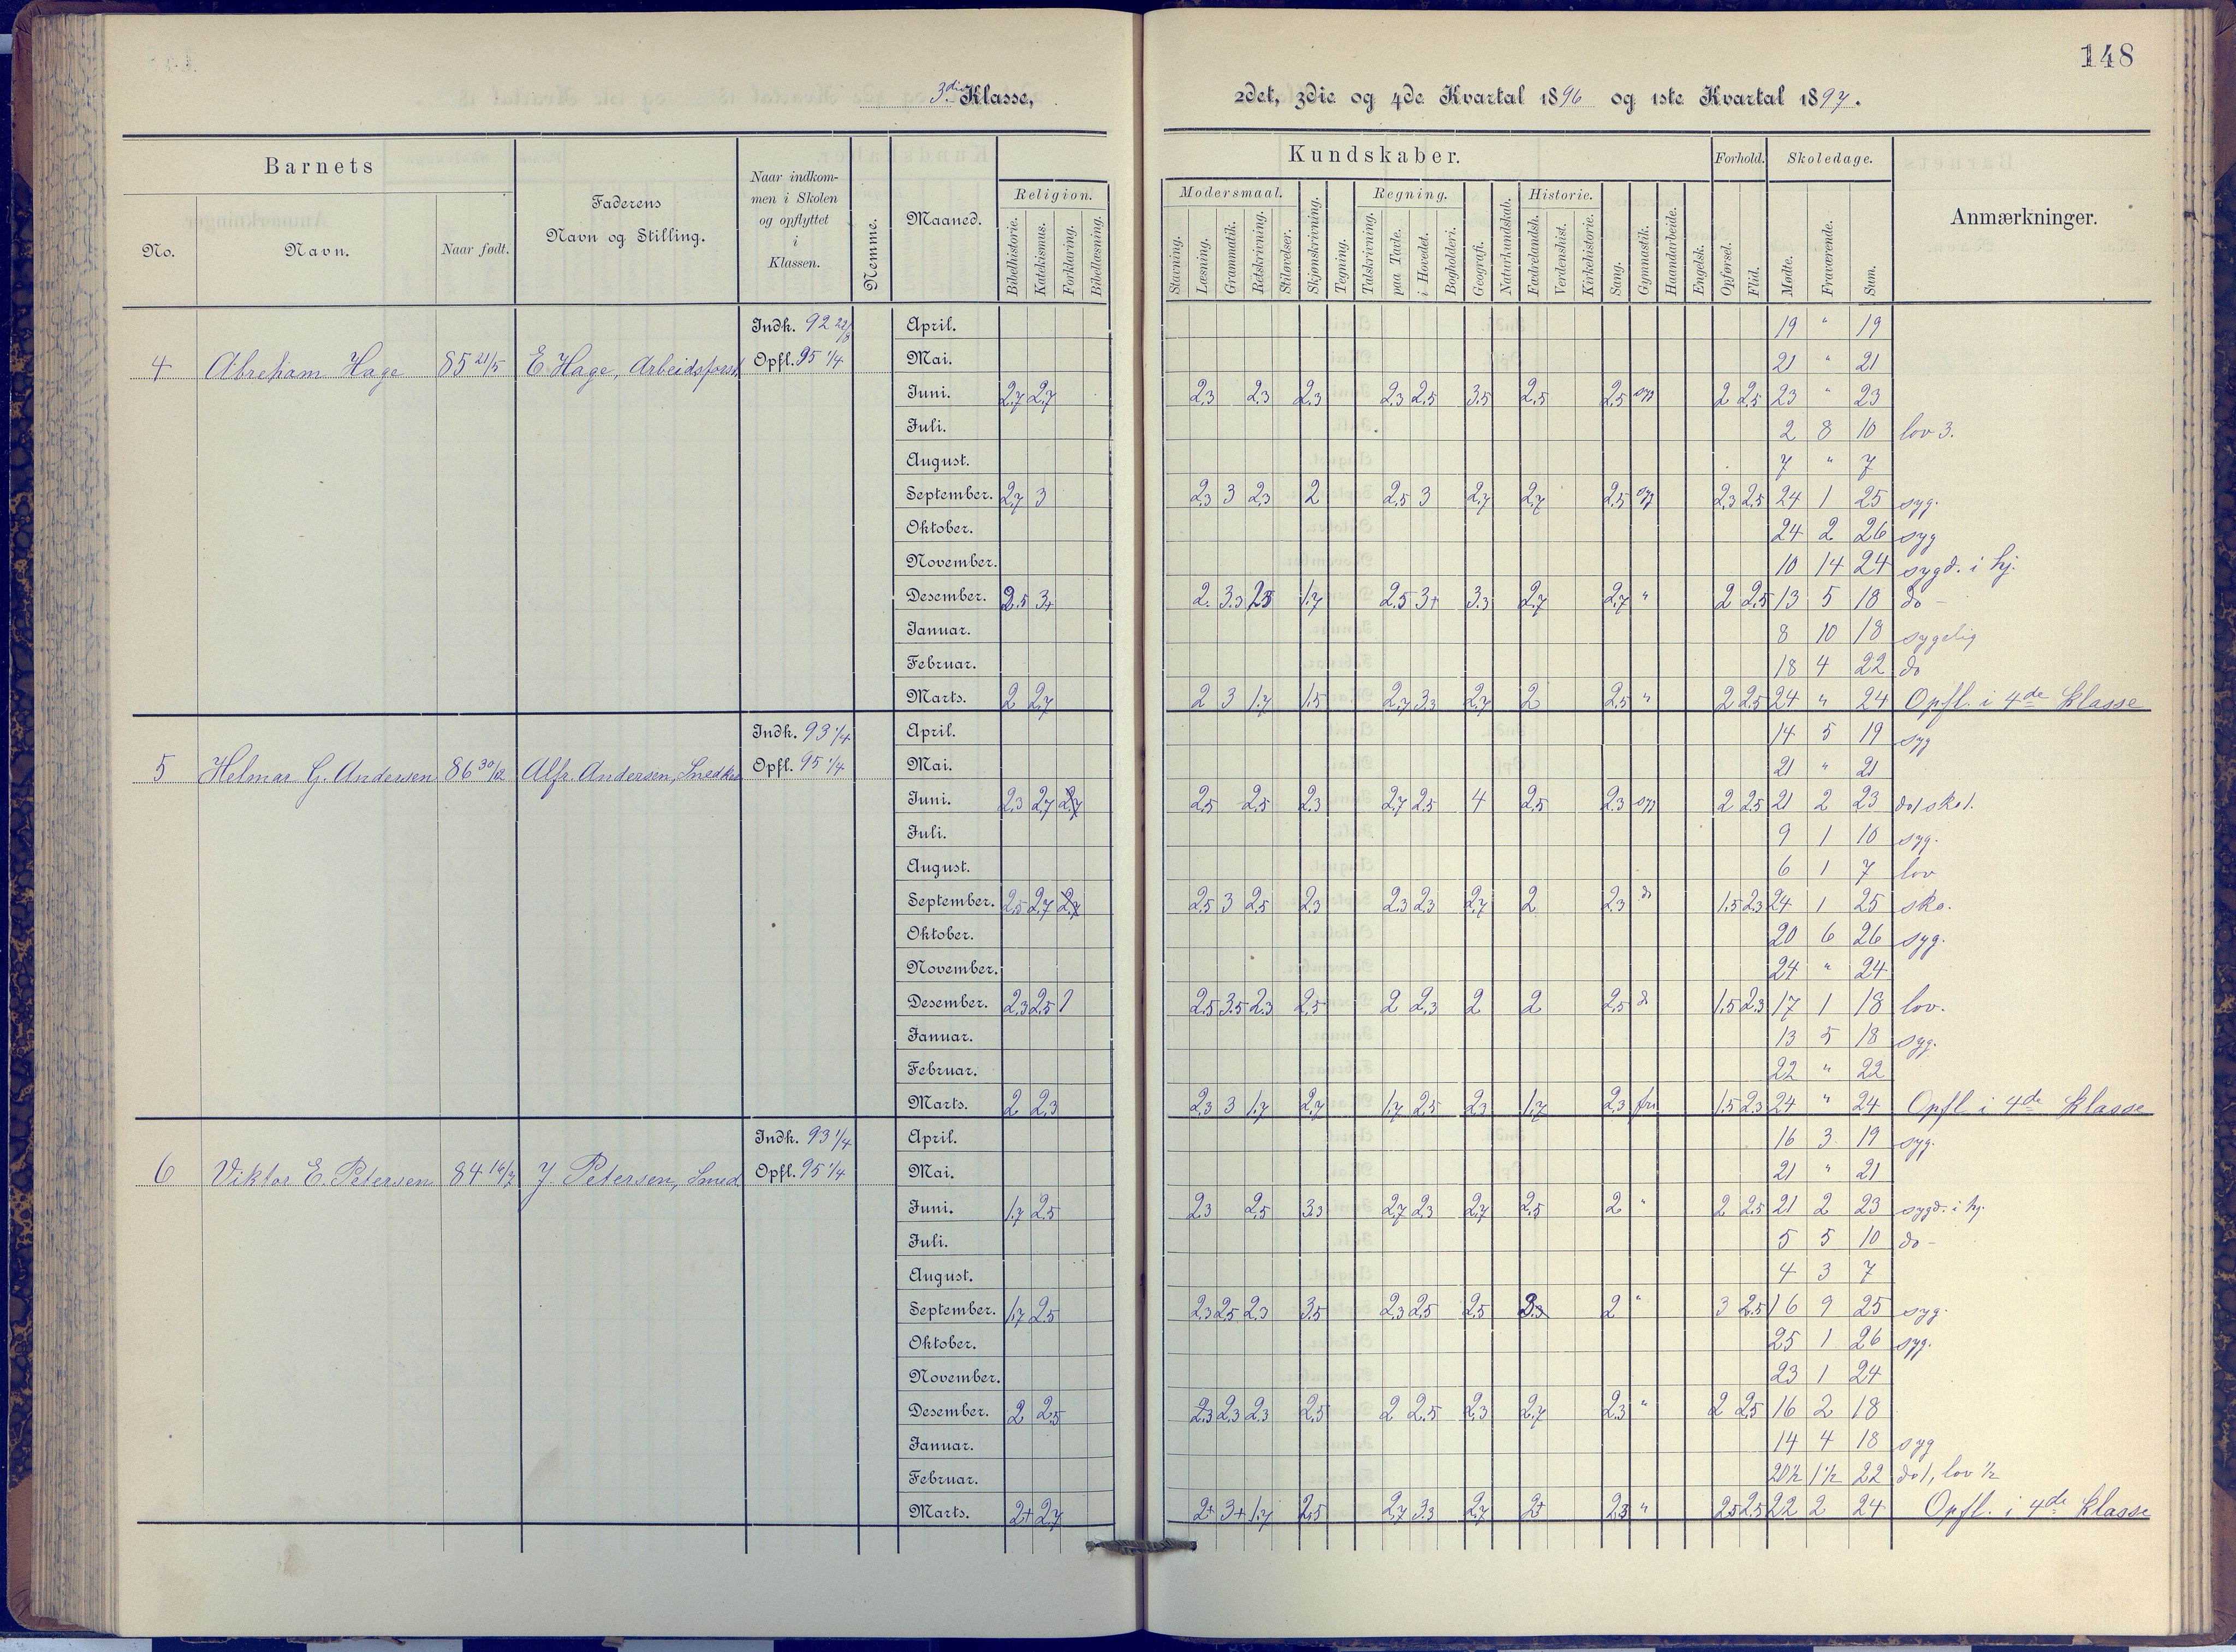 148
3die Klasse,
2det, 3die og 4de Kvartal 1896 og 1ste Kvartal 1897.
Barnets
No.
Navn.
Naar født.
Faderens
Navn og Stilling.
Naar indkom-
men i Skolen
og opflyttet
i
Klassen.
Nemme.
Maaned.
Kundskaber.
Religion.
Bibelhistorie.
Katekismus.
Forklaring.
Bibellæsning.
Modersmaal.
Stavning.
Læsning.
Grammatik.
Retskrivning.
Stiløvelser.
Skjønskrivning.
Tegning.
Regning.
Talskrivning.
paa Tavle.
i Hovedet.
Bogholderi.
Geografi.
Naturkundskab.
Historie.
Fædrelandsh.
Verdenshist.
Kirkehistorie.
Sang.
Gymnastik.
Haandarbeide.
Engelsk.
Forhold.
Opførsel.
Flid.
Skoledage.
Mødte.
Fraværende.
Sum.
Anmærkninger.
4 Abreham Hage 85 21/5 E. Hage, Arbeidsforst.
Indk. 92 22/8
Opfl. 95 1/4
April. 19 " 19
Mai. 21 " 21
Juni. 2.7 2.7 2.3 2.3 2.3 2.3 2.5 3.5 2.5 2.5 2 2.5 23 " 23
Juli. 2 8 10 lov 3.
August. 7 " 7
September. 2.7 3 2.3 3 2.3 2 2.5 3 2.7 2.7 2.5 2.3 2.5 24 1 25 syg.
Oktober. 24 2 26 syg
November. 10 14 24 sygd. i hj.
Desember. 2.5 3+ 2. 3.3 2.5 1.7 2.5 3+ 3.3 2.7 2.7 " 2 2.5 13 5 18 do –
Januar. 8 10 18 sygelig
Februar. 18 4 22 do
Marts. 2 2.7 2 3 1.7 1.5 2.7 3.3 2.7 2 2.5 " 2 2.5 24 " 24 Opfl. i 4de Klasse
5 Helmar G. Andersen 86 30/12 Alfr. Andersen, Snedker
Indk. 93 1/4
Opfl. 95 1/4
April. 14 5 19 syg
Mai. 21 " 21
Juni. 2.3 2.7 2.7 2.5 2.5 2.3 2.7 2.5 4 2.5 2.3 2 2.5 21 2 23 do 1 sko 1.
Juli. 9 1 10 syg.
August. 6 1 7 lov
September. 2.5 2.7 2.7 2.5 3 2.5 2.3 2.3 2.3 2.7 2 2.3 do 1.5 2.3 24 1 25 sko.
Oktober. 20 6 26 syg.
November. 24 " 24
Desember. 2.3 2.5 1 2.5 3.5 2.3 2.5 2 2.3 2 2 2.5 do 1.5 2.3 17 1 18 lov.
Januar. 13 5 18 syg.
Februar. 22 " 22
Marts. 2 2.3 2.3 3 1.7 2.7 1.7 2.5 2.3 1.7 2.3 fri 1.5 2.3 24 " 24 Opfl i 4de Klasse
6 Viktor E. Petersen 84 16/7 J. Petersen, Smed.
Indk. 93 1/4
Opfl. 95 1/4
April. 16 3 19 syg.
Mai. 21 " 21
Juni. 1.7 2.5 2.3 2.5 3.3 2.7 2.3 2.7 2.5 2 " 2 2.5 21 2 23 sygd. i hj.
Juli. 5 5 10 do –
August. 4 3 7
September. 1.7 2.5 2.3 2.5 2.3 3.5 2.3 2.5 2.5 3.3 2 " 3 2.5 16 9 25 syg.
Oktober. 25 1 26 syg.
November. 23 1 24
Desember. 2 2.5 2.3 2.3 2.3 2.5 2 2.5 2.3 2.7 2.3 " 2 2.5 16 2 18
Januar. 14 4 18 syg
Februar. 20½ 1½ 22 do 1, lov ½
Marts. 2+ 2.7 2+ 3+ 1.7 2.5 2.7 3.3 2.7 2+ 2.3 " 2.5 2.5 22 2 24 Opfl. i 4de Klasse